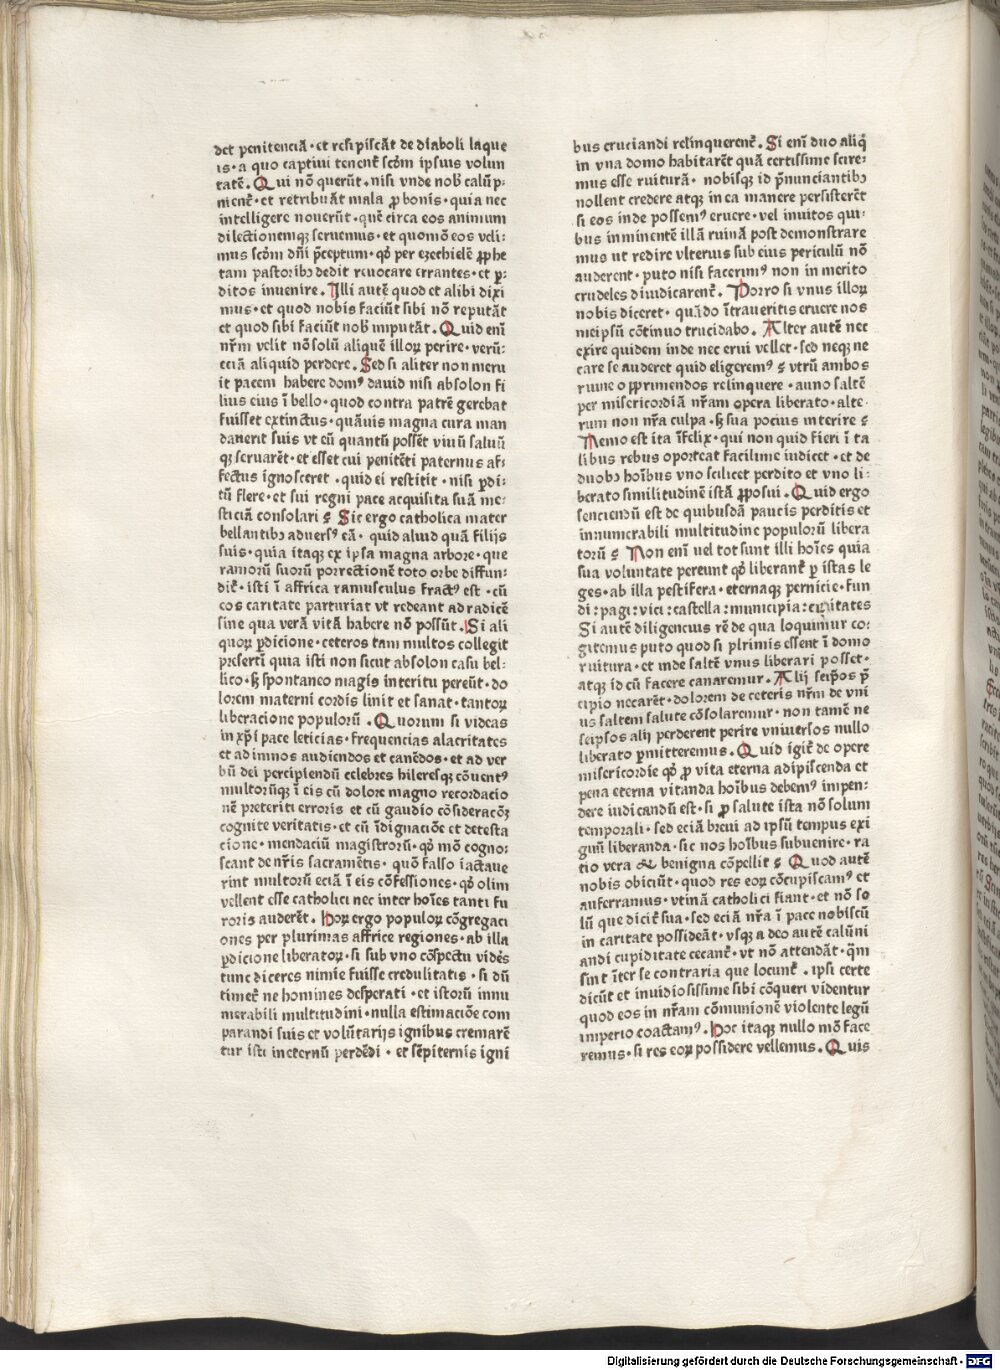 det penitenciā · et resipiscāt de diaboli laque
is · a quo captiui tenent᷑ scd̄m ipsius volun
tatē . Qui nō querūt · nisi vnde nob̾ calūp-
nient᷑ · et retribuāt mala ꝓ bonis · quia nec
intelligere nouerūt · quē circa eos animum
dilectionemqꝫ seruemus · et quomō eos veli-
mus scd̄m dn̄i p̄ceptum · qd̾ per ezechielē ꝓphe
tam pastoribꝫ dedit reuocare errantes · et ꝑ-
ditos inuenire . Illi autē quod et alibi dixi
mus · et quod nobis faciūt sibi nō reputāt
et quod sibi faciūt nob̾ imputāt . Quid enī
nr̄m velit nō solū aliquē illoꝝ perire · verū-
eciā aliquid perdere . Sed si aliter non meru
it pacem habere domꝰ dauid nisi absolon fi
lius eius ī bello · quod contra patrē gerebat
fuisset extinctus · quāuis magna cura man
dauerit suis vt eū quantū possēt viuū saluū
qꝫ seruarēt · et esset cui penitēti paternus af-
fectus ignosceret · quid ei restitit · nisi ꝑdi-
tū flere · et sui regni pace acquisita suā me-
sticiā consolari ⸮ Sic ergo catholica mater
bellantibꝫ aduersꝰ eā · quid aliud quā filijs
suis · quia itaqꝫ ex ipsa magna arbore · que
ramorū suorū porrectionē toto orbe diffun-
dit᷑ · isti ī affrica ramusculus fractꝰ est · cū
eos caritate parturiat vt redeant ad radicē
sine qua verā vitā habere nō possūt . Si ali
quoꝝ ꝑdicione · ceteros tam multos collegit
p̄sertī quia isti non sicut absolon casu bel-
lico · sꝫ spontaneo magis interitu pereūt · do
lorem materni cordis linit et sanat · tantoꝝ
liberacione populorū . Quorum si videas
in xp̄i pace leticias · frequencias alacritates
et ad imnos audiendos et canēdos · et ad ver
bū dei percipiendū celebres hileresqꝫ cōuentꝰ
multorūqꝫ ī eis cū dolore magno recordacio
nē preteriti erroris · et cū gaudio cōsideracōꝫ
cognite veritatis · et cū īdignaciōe et detesta
cione · mendaciū magistrorū · qd̾ mō cogno-
scant de nr̄is sacramētis · quō falso iactaue
rint multorū eciā ī eis cōfessiones · qd̾ olim
vellent esse catholici nec inter hoīes tanti fu
roris auderēt . Hoꝝ ergo populoꝝ cōgregaci
ones per plurimas affrice regiones · ab illa
ꝑdicione liberatoꝝ · si sub vno cōspectu vidēs
tunc diceres nimie fuisse credulitatis · si dū
timet᷑ ne homines desperati · et istorū innu
merabili multitudini · nulla estimaciōe com
parandi suis et volūtarijs ignibus cremarē
tur isti ineternū perdēdi · et sēpiternis igni
bus cruciandi relinquerent᷑ . Si enī duo aliq̄
in vna domo habitarēt quā certissime scire-
mus esse ruiturā · nobisqꝫ id p̄nunciantibꝫ
nollent credere atqꝫ in ea manere persisterēt
si eos inde possemꝰ eruere · vel inuitos qui-
bus imminentē illā ruinā post demonstrare
mus ut redire vlterus sub eius periculū nō
auderent · puto nisi facerimꝰ non in merito
crudeles diiudicarent᷑ . Porro si vnus illoꝝ
nobis diceret · quādo ītraueritis eruere nos
meipsū cōtinuo trucidabo . Alter autē nec
exire quidem inde nec erui vellet · sed neqꝫ ne
care se auderet quid eligeremꝰ ⸮ vtrū ambos
ruine opprimendos relinquere · an uno saltē
per misericordiā nr̄am opera liberato · alte-
rum non nr̄a culpa · sꝫ sua pocius interire ⸮
Nemo est ita īfelix · qui non quid fieri ī ta
libus rebus oporteat facilime iudicet · et de
duobꝫ hoībus vno scilicet perdito et vno li-
berato similitudinē istā ꝓposui . Quid ergo
senciendū est de quibusdā paucis perditis et
innumerabili multitudine populorū libera
torū ⸮ Non enī uel tot sunt illi hoīes quia
sua voluntate pereunt qd̾ liberant᷑ ꝑ istas le
ges · ab illa pestifera · eternaqꝫ pernicie · fun
di : pagi : vici : castella : municipia : ciuitates
Si autē diligencius rē de qua loquimur co-
gitemus puto quod si plrimis essent ī domo
ruitura · et inde saltē vnus liberari posset ·
atqꝫ id cū facere conaremur . Alij seip̄os p̄
cipio necarēt · dolorem de ceteris nr̄m de vni
us saltem salute cōsolaremur · non tamē ne
seipsos alij perderent perire vniuersos nullo
liberato ꝑmitteremus . Quid igit᷑ de opere
misericordie qd̾ ꝓ vita eterna adipiscenda et
pena eterna vitanda hoībus debemꝰ impen-
dere iudicandū est · si ꝓ salute ista nō solum
temporali · sed eciā breui ad ipsū tempus exi
guū liberanda · sic nos hoībus subuenire · ra
tio vera & benigna cōpellit ⸮ Quod autē
nobis obiciūt · quod res eoꝝ cōcupiscamꝰ et
auferramus · vtinā catholici fiant · et nō so
lū que dicit᷑ sua · sed eciā nr̄a ī pace nobiscū
in caritate possideāt · vsqꝫ a deo autē calūni
andi cupiditate cecant᷑ · vt nō attendāt · q̄m
sint īter se contraria que locunt᷑ . ipsi certe
dicūt et inuidiosissime sibi cōqueri videntur
quod eos in nr̄am cōmunionē violento legū
imperio coactamꝰ . Hoc itaqꝫ nullo mō face
remus · si res eoꝝ possidere vellemus . Quis